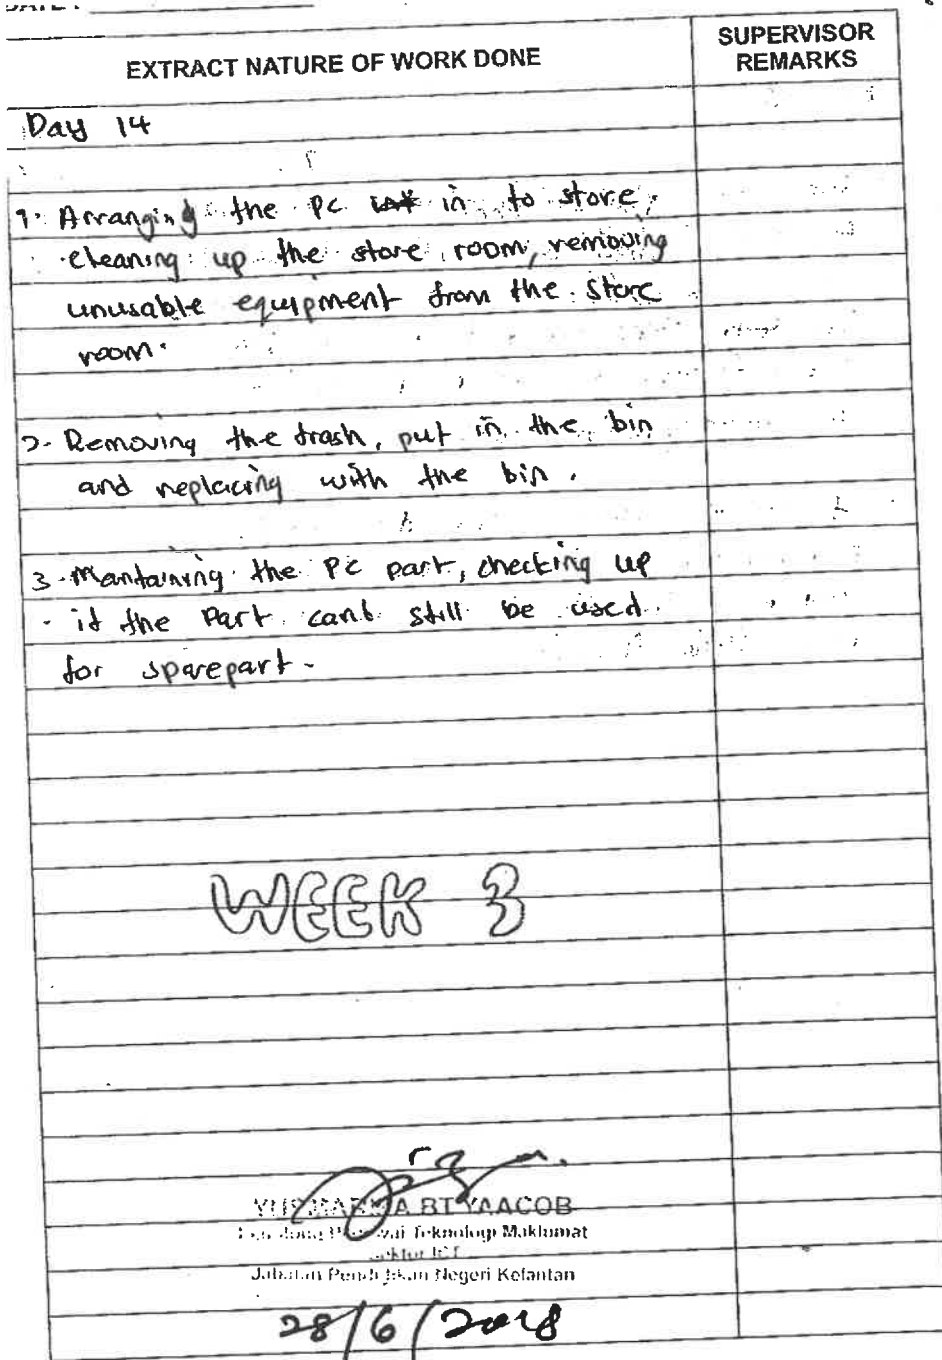 EXTRACT NATURE OF WORK DONE
SUPERVISOR
REMARKS
Day 14
1. Arranging the PC in to store,
cleaning up the store room, removing
unusable equipment from the store
room.
2. Removing the trash, put in the bin
and replacing with the bin.
3. Mantaining the PC part, checking up
if the Part cant still be used
for sparepart.
WEEK 3
BT YAACOB
Teknologi Maklumat
Jabatan Pendidikan Negeri Kelantan
28/6/2018